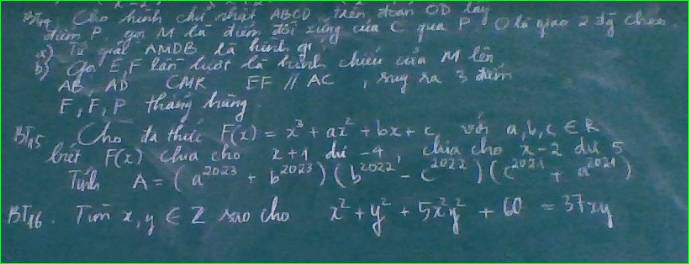 BT14 Cho hình chữ nhật ABCD trên đoạn OD lấy
điểm P, gọi M là điểm đối xứng của C qua P. O là giao 2 đg chéo
a) Tứ giác AMDB là hình gì
b) Gọi E, F lần lượt là hình chiếu của M lên
AB, AD CMR EF // AC , suy ra 3 điểm
E, F, P thẳng hàng
BT15 Cho đa thức F(x) = x³ + ax² + bx + c, với a, b, c ∈ R
biết F(x) chia cho x+1 dư -4, chia cho x-2 dư 5
Tính A = (a²⁰²³ + b²⁰²³)(b²⁰²² - c²⁰²²)(c²⁰²¹ + a²⁰²¹)
BT16. Tìm x, y ∈ Z sao cho x² + y² + 5x²y² + 60 = 37xy